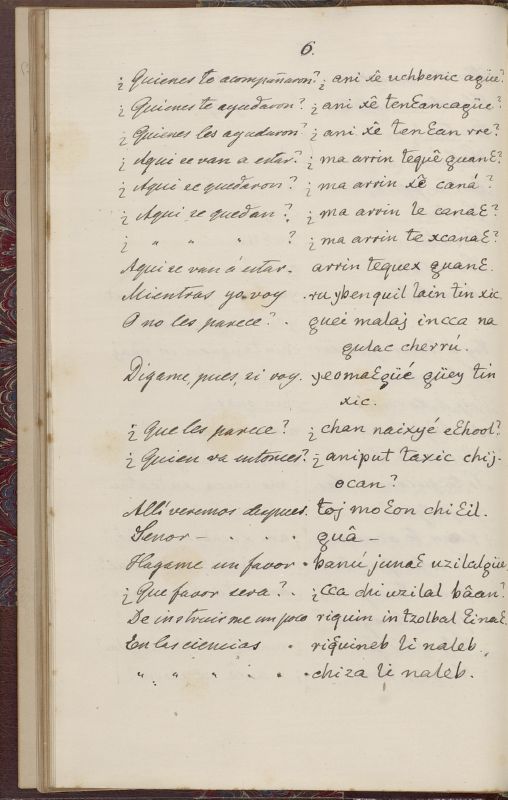 6.
¿ Quienes te acompañaron? ¿ ani xê uchbenic agüe?
¿ Quienes te ayudaron? ¿ ani xê tenƐancagüe?
¿ Quienes les ayudaron? ¿ ani xê tenƐan rre?
¿ Aqui se van a estar? ¿ ma arrin tequê guanƐ?
¿ Aqui se quedaron? ¿ ma arrin xê caná?
¿ Aqui se quedan? ¿ ma arrin te canaƐ?
¿ " " " ? ¿ ma arrin te xcanaƐ?
Aqui se van á estar. arrin tequex guanƐ.
Mientras yo voy . ru ybenquil lain tin xic
O no les parece? . guei malaj incca na
gulac cherrú.
Dígame, pues, si voy. yeomaƐgüé güey tin
xic.
¿ Que les parece? ¿ chan naixyé eƐhool?
¿ Quien va entonces? ¿ aniput taxic chij.
ocan?
Allí veremos despues. toj moƐon chiƐil.
Señor - . . . guâ -
Hagame un favor . banú junaƐ uzilalgüe
¿ Que favor sera? . ¿ cca chi uzilal bâan?
De instruirme un poco riquin in tzolbal ƐinaƐ.
En las ciencias . riquineb li naleb.
" " " . . . chiza li naleb.